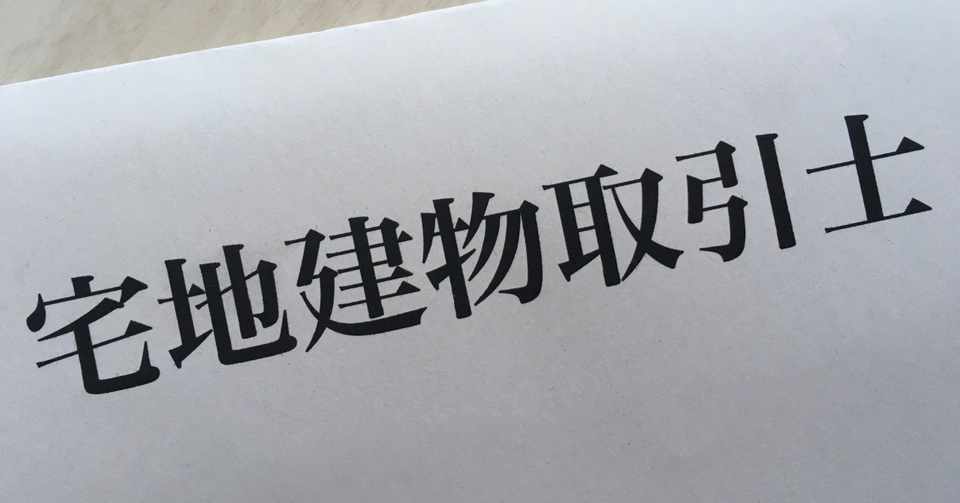 宅地建物取引士